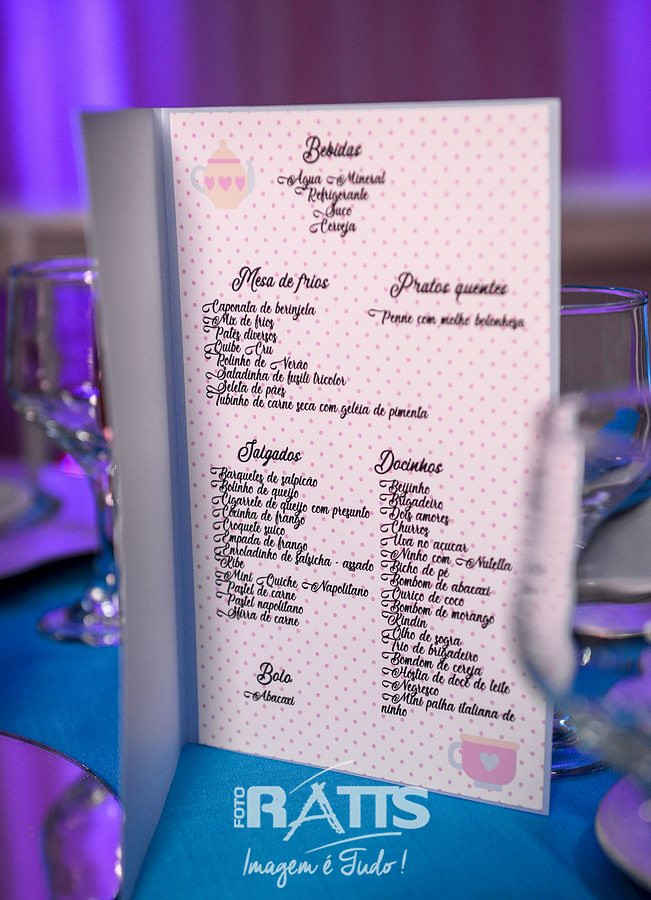 Bebidas
Água Mineral
Refrigerante
Suco
Cerveja
Mesa de frios
Caponata de berinjela
Mix de frios
Patês diversos
Quibe Cru
Rolinho de Verão
Saladinha de fusili tricolor
Seleta de pães
Tubinho de carne seca com geléia de pimenta
Pratos quentes
Penne com molho bolonhesa
Salgados
Barquetes de salpicão
Bolinho de queijo
Cigarrete de queijo com presunto
Coxinha de frango
Croquete suíço
Empada de frango
Enroladinho de salsicha - assado
Kibe
Mini Quiche Napolitano
Pastel de carne
Pastel napolitano
Sfirra de carne
Docinhos
Beijinho
Brigadeiro
Dois amores
Churros
Uva no açucar
Ninho com Nutella
Bicho de pé
Bombom de abacaxi
Ouriço de coco
Bombom de morango
Kindin
Olho de sogra
Trio de brigadeiro
Bomdom de cereja
Hóstia de doce de leite
Negresco
Mini palha italiana de
ninho
Bolo
Abacaxi
FOTO RATTS
Imagem é Tudo!